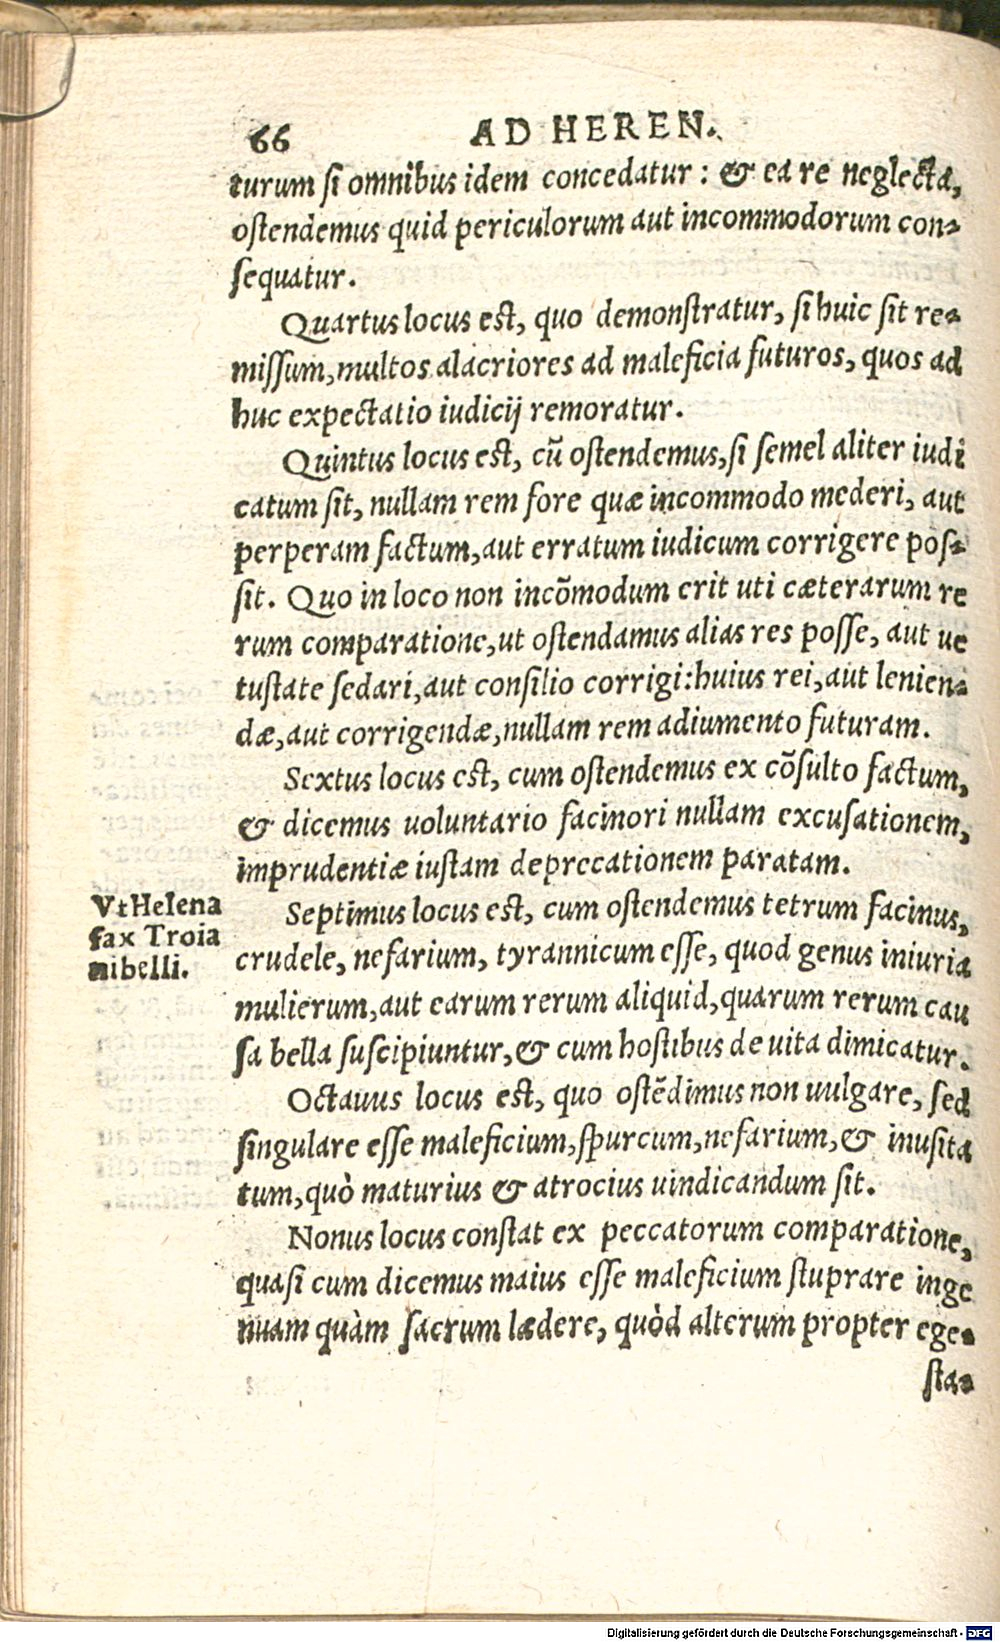 66 AD HEREN.
turum si omnibus idem concedatur: & ea re neglecta,
ostendemus quid periculorum aut incommodorum con-
sequatur.
Quartus locus est, quo demonstratur, si huic sit re-
missum, multos alacriores ad maleficia futuros, quos ad
huc expectatio iudicij remoratur.
Quintus locus est, cū ostendemus, si semel aliter iudi
catum sit, nullam rem fore quæ incommodo mederi, aut
perperam factum, aut erratum iudicum corrigere pos-
sit. Quo in loco non incōmodum erit uti cæterarum re
rum comparatione, ut ostendamus alias res posse, aut ue
tustate sedari, aut consilio corrigi: huius rei, aut lenien-
dæ, aut corrigendæ, nullam rem adiumento futuram.
Sextus locus est, cum ostendemus ex cōsulto factum,
& dicemus uoluntario facinori nullam excusationem,
imprudentiæ iustam deprecationem paratam.
Vt Helena
fax Troia
ni belli.
Septimus locus est, cum ostendemus tetrum facinus,
crudele, nefarium, tyrannicum esse, quod genus iniuria
mulierum, aut earum rerum aliquid, quarum rerum cau
sa bella suscipiuntur, & cum hostibus de uita dimicatur.
Octauus locus est, quo ostēdimus non uulgare, sed
singulare esse maleficium, spurcum, nefarium, & inusita
tum, quò maturius & atrocius uindicandum sit.
Nonus locus constat ex peccatorum comparatione,
quasi cum dicemus maius esse maleficium stuprare inge
nuam quàm sacrum lædere, quòd alterum propter ege-
sta-
Digitalisierung gefördert durch die Deutsche Forschungsgemeinschaft - DFG